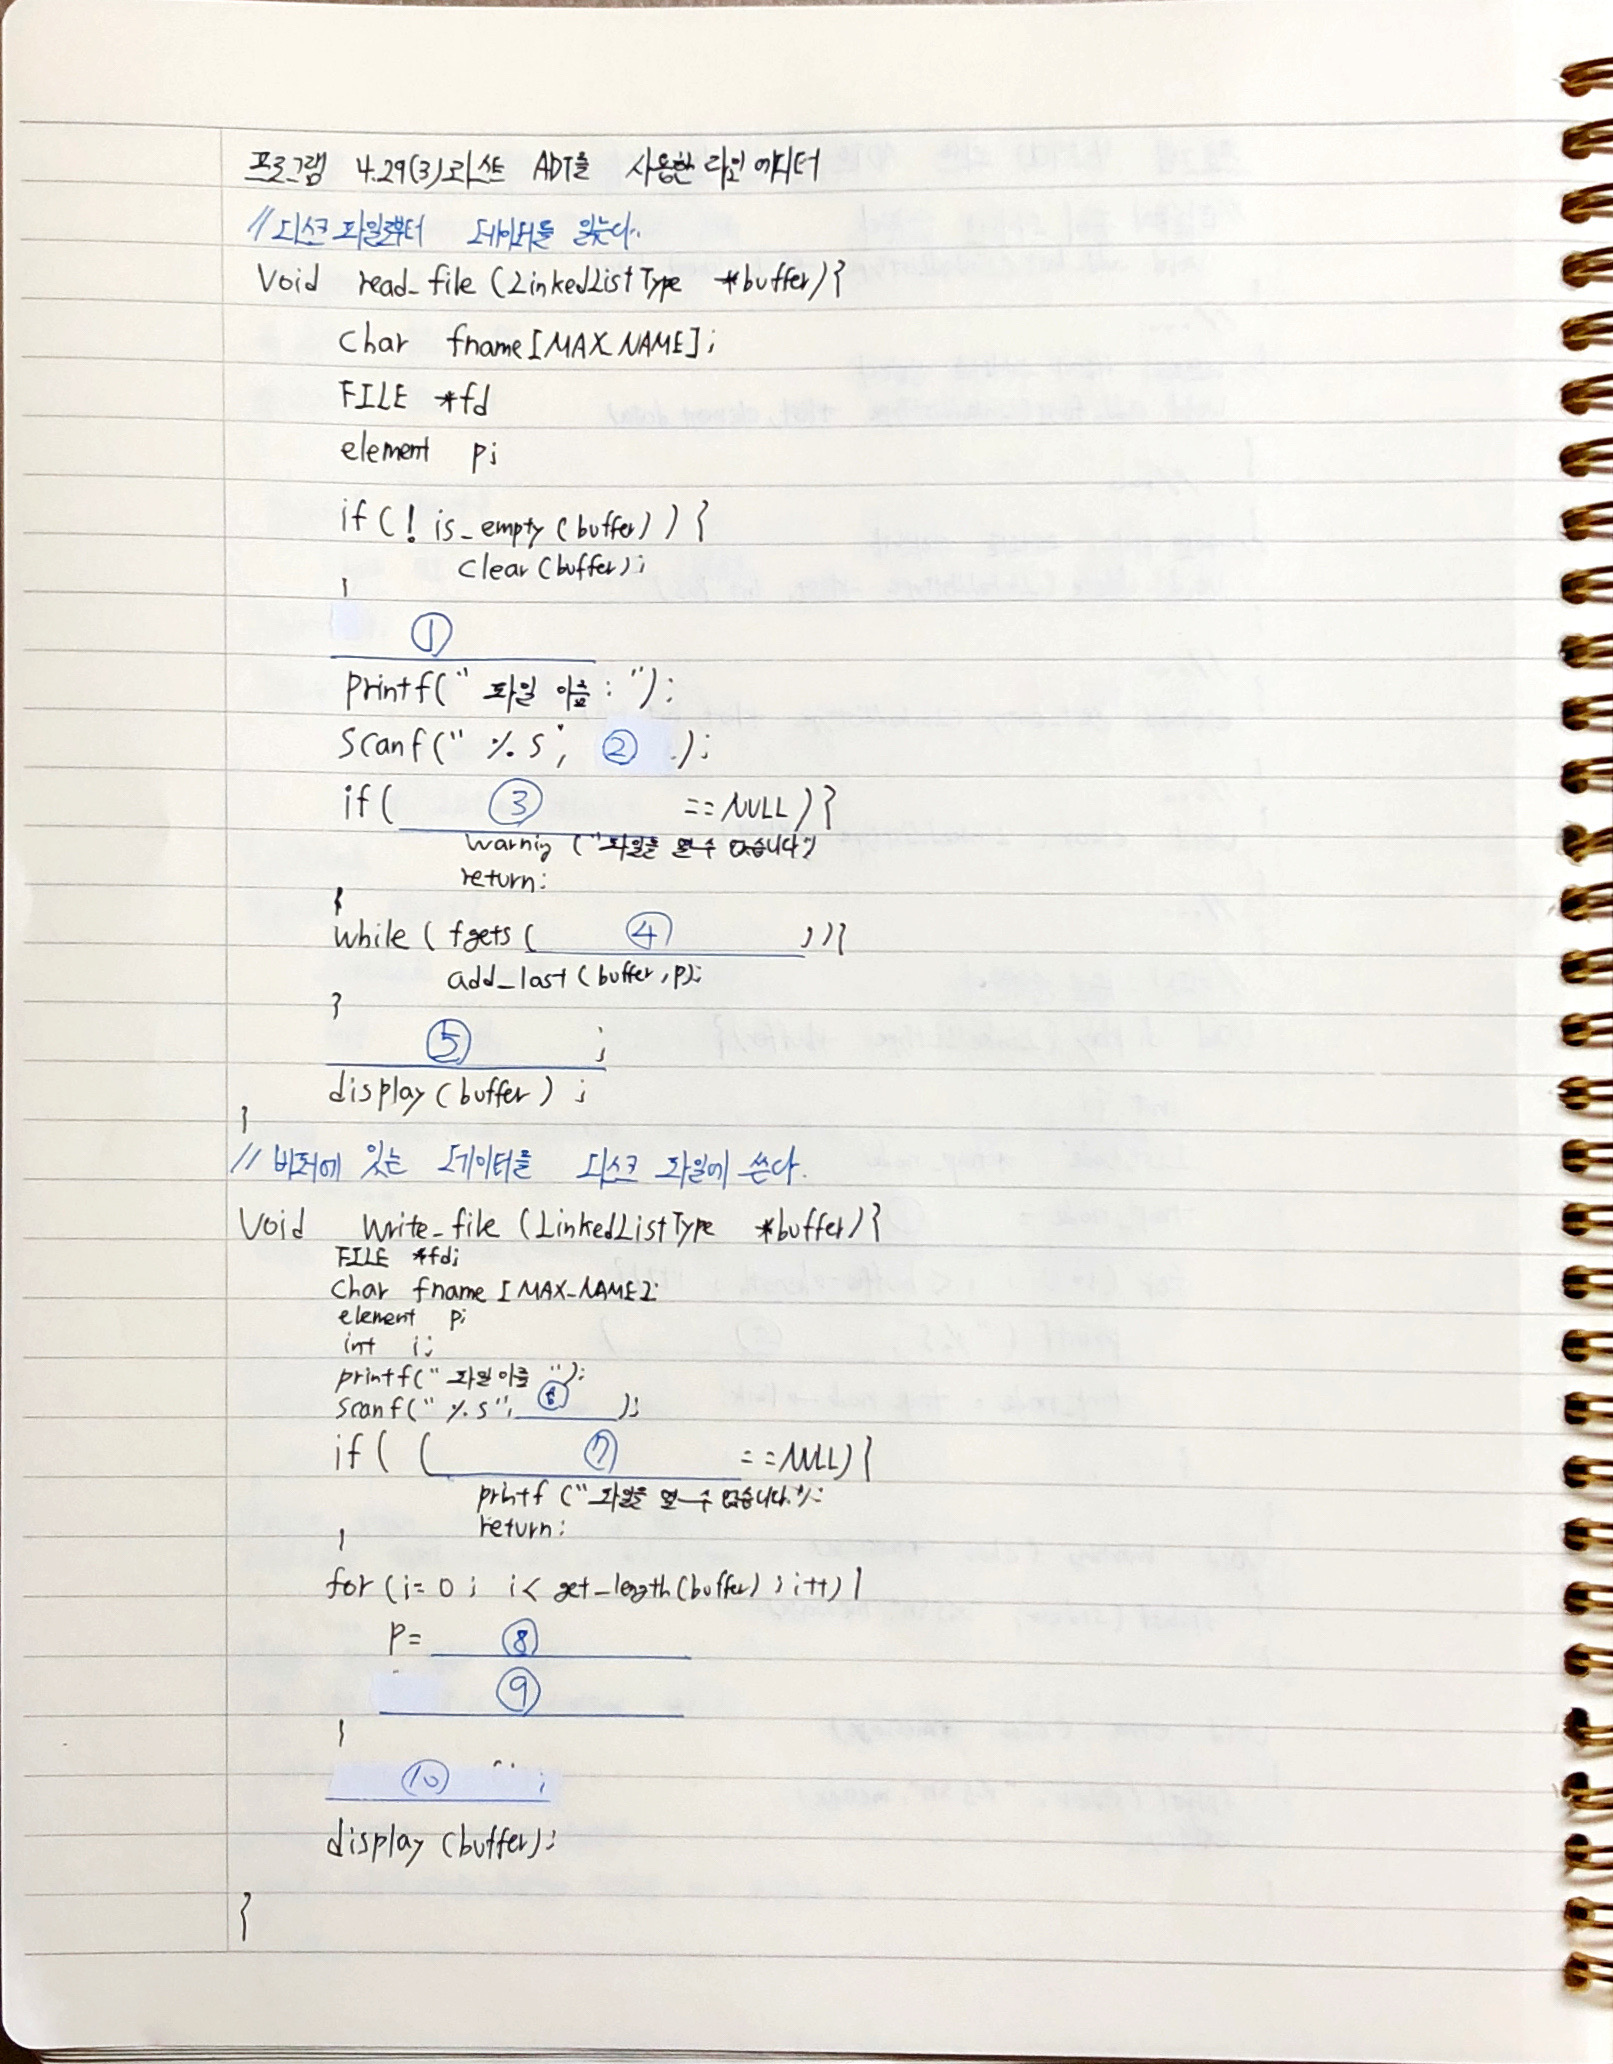 프로그램 4.29(3)리스트 ADT를 사용한 라인 에디터
// 디스크 파일로부터 데이터를 읽는다.
Void read_file (LinkedListType *buffer){
char fname[MAX_NAME];
FILE *fd
element p;
if(! is_empty (buffer)) {
clear (buffer);
}
①
printf(" 파일 이름 : ");
scanf(" %.s", ② );
if( ③ ==NULL){
warnig ("파일을 열 수 없습니다")
return;
}
while ( fgets ( ④ )){
add_last (buffer,p);
}
⑤ ;
display(buffer) ;
}
// 버퍼에 있는 데이터를 디스크 파일에 쓴다.
Void write_file (LinkedListType *buffer){
FILE *fd;
char fname [MAX_NAME];
element p;
int i;
printf("파일이름 ");
scanf(" %.s", ⑥ );
if ( ( ⑦ ==NULL) {
printf ("파일을 열 수 없습니다.");
return;
}
for (i=0 ; i< get_length(buffer) ; i++) {
p= ⑧
⑨
}
⑩ ;
display (buffer);
}